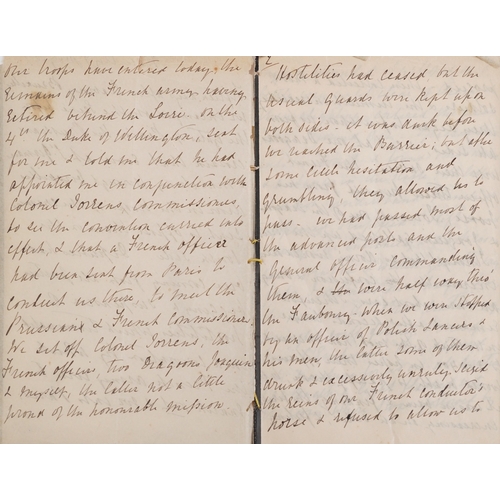 our troops have entered today, the
remains of the French army having
retired behind the Loire. On the
4th the Duke of Wellington, sent
for me & told me that he had
appointed me in conjunction with
Colonel Torrens, Commissioner,
to see the convention carried into
effect, & that a French officer
had been sent from Paris to
conduct us there, to meet the
Prussians & French Commissioners.
We set off Colonel Torrens, the
French officer, two Dragoons
& myself, the latter not a little
proud of the honourable mission.
2
Hostilities had ceased but the
usual guards were kept upon
both sides. it was dark before
we reached the Barrier, but after
some little hesitation and
grumbling, they allowed us to
pass. we had passed most of
the advanced posts and the
General officer commanding
them, & were half way thro
the Faubourg when we were stopped
by an officer of Polish Lancers &
his men, the latter some of them
drunk & excessively unruly. Seized
the reins of our French conductor's
horse & refused to allow us to